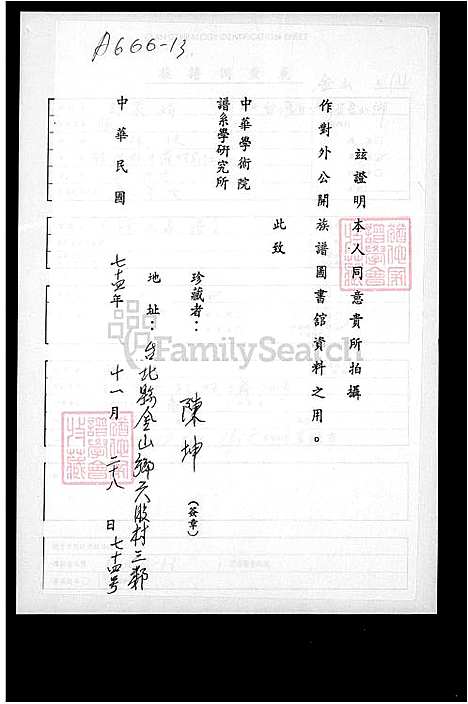 A666-13
茲證明本人同意貴所拍攝
作對外公開族譜圖書館資料之用。
此致
中華學術院
譜系學研究所
珍藏者：陳坤（簽章）
地址：台北縣金山鄉六股村三鄰
七十四号
中華民國七十四年十一月二十八日
FamilySearch